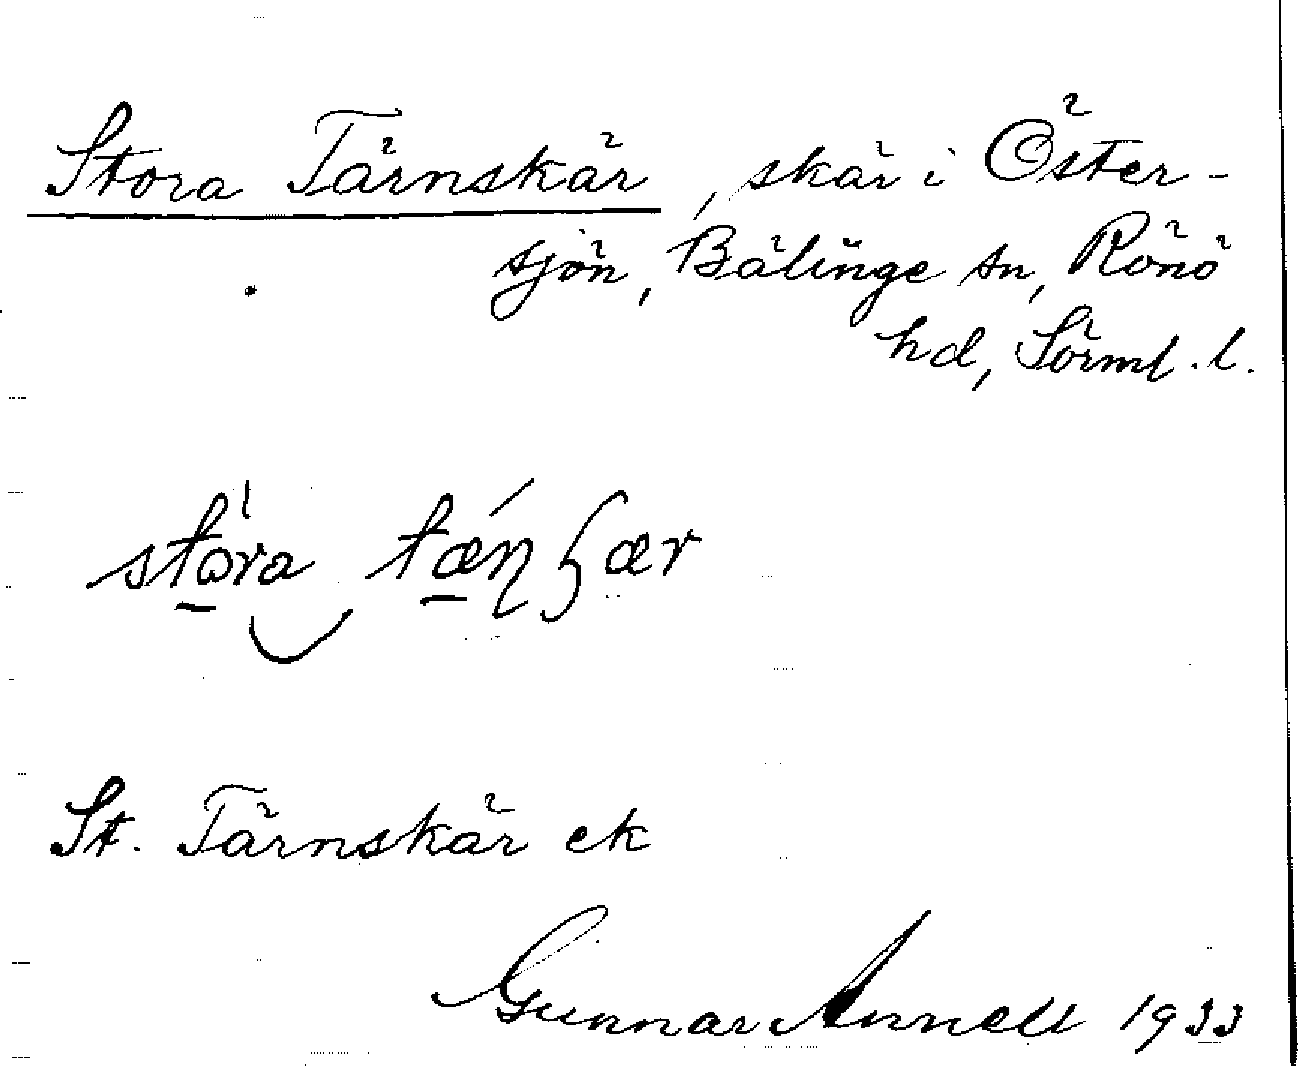 Stora Tärnskär, skär i Öster-
sjön, Bälinge sn, Rönö
hd, Sörml. l.
stora tæɳʂær
St. Tärnskär ek
Gunnar Annell 1933